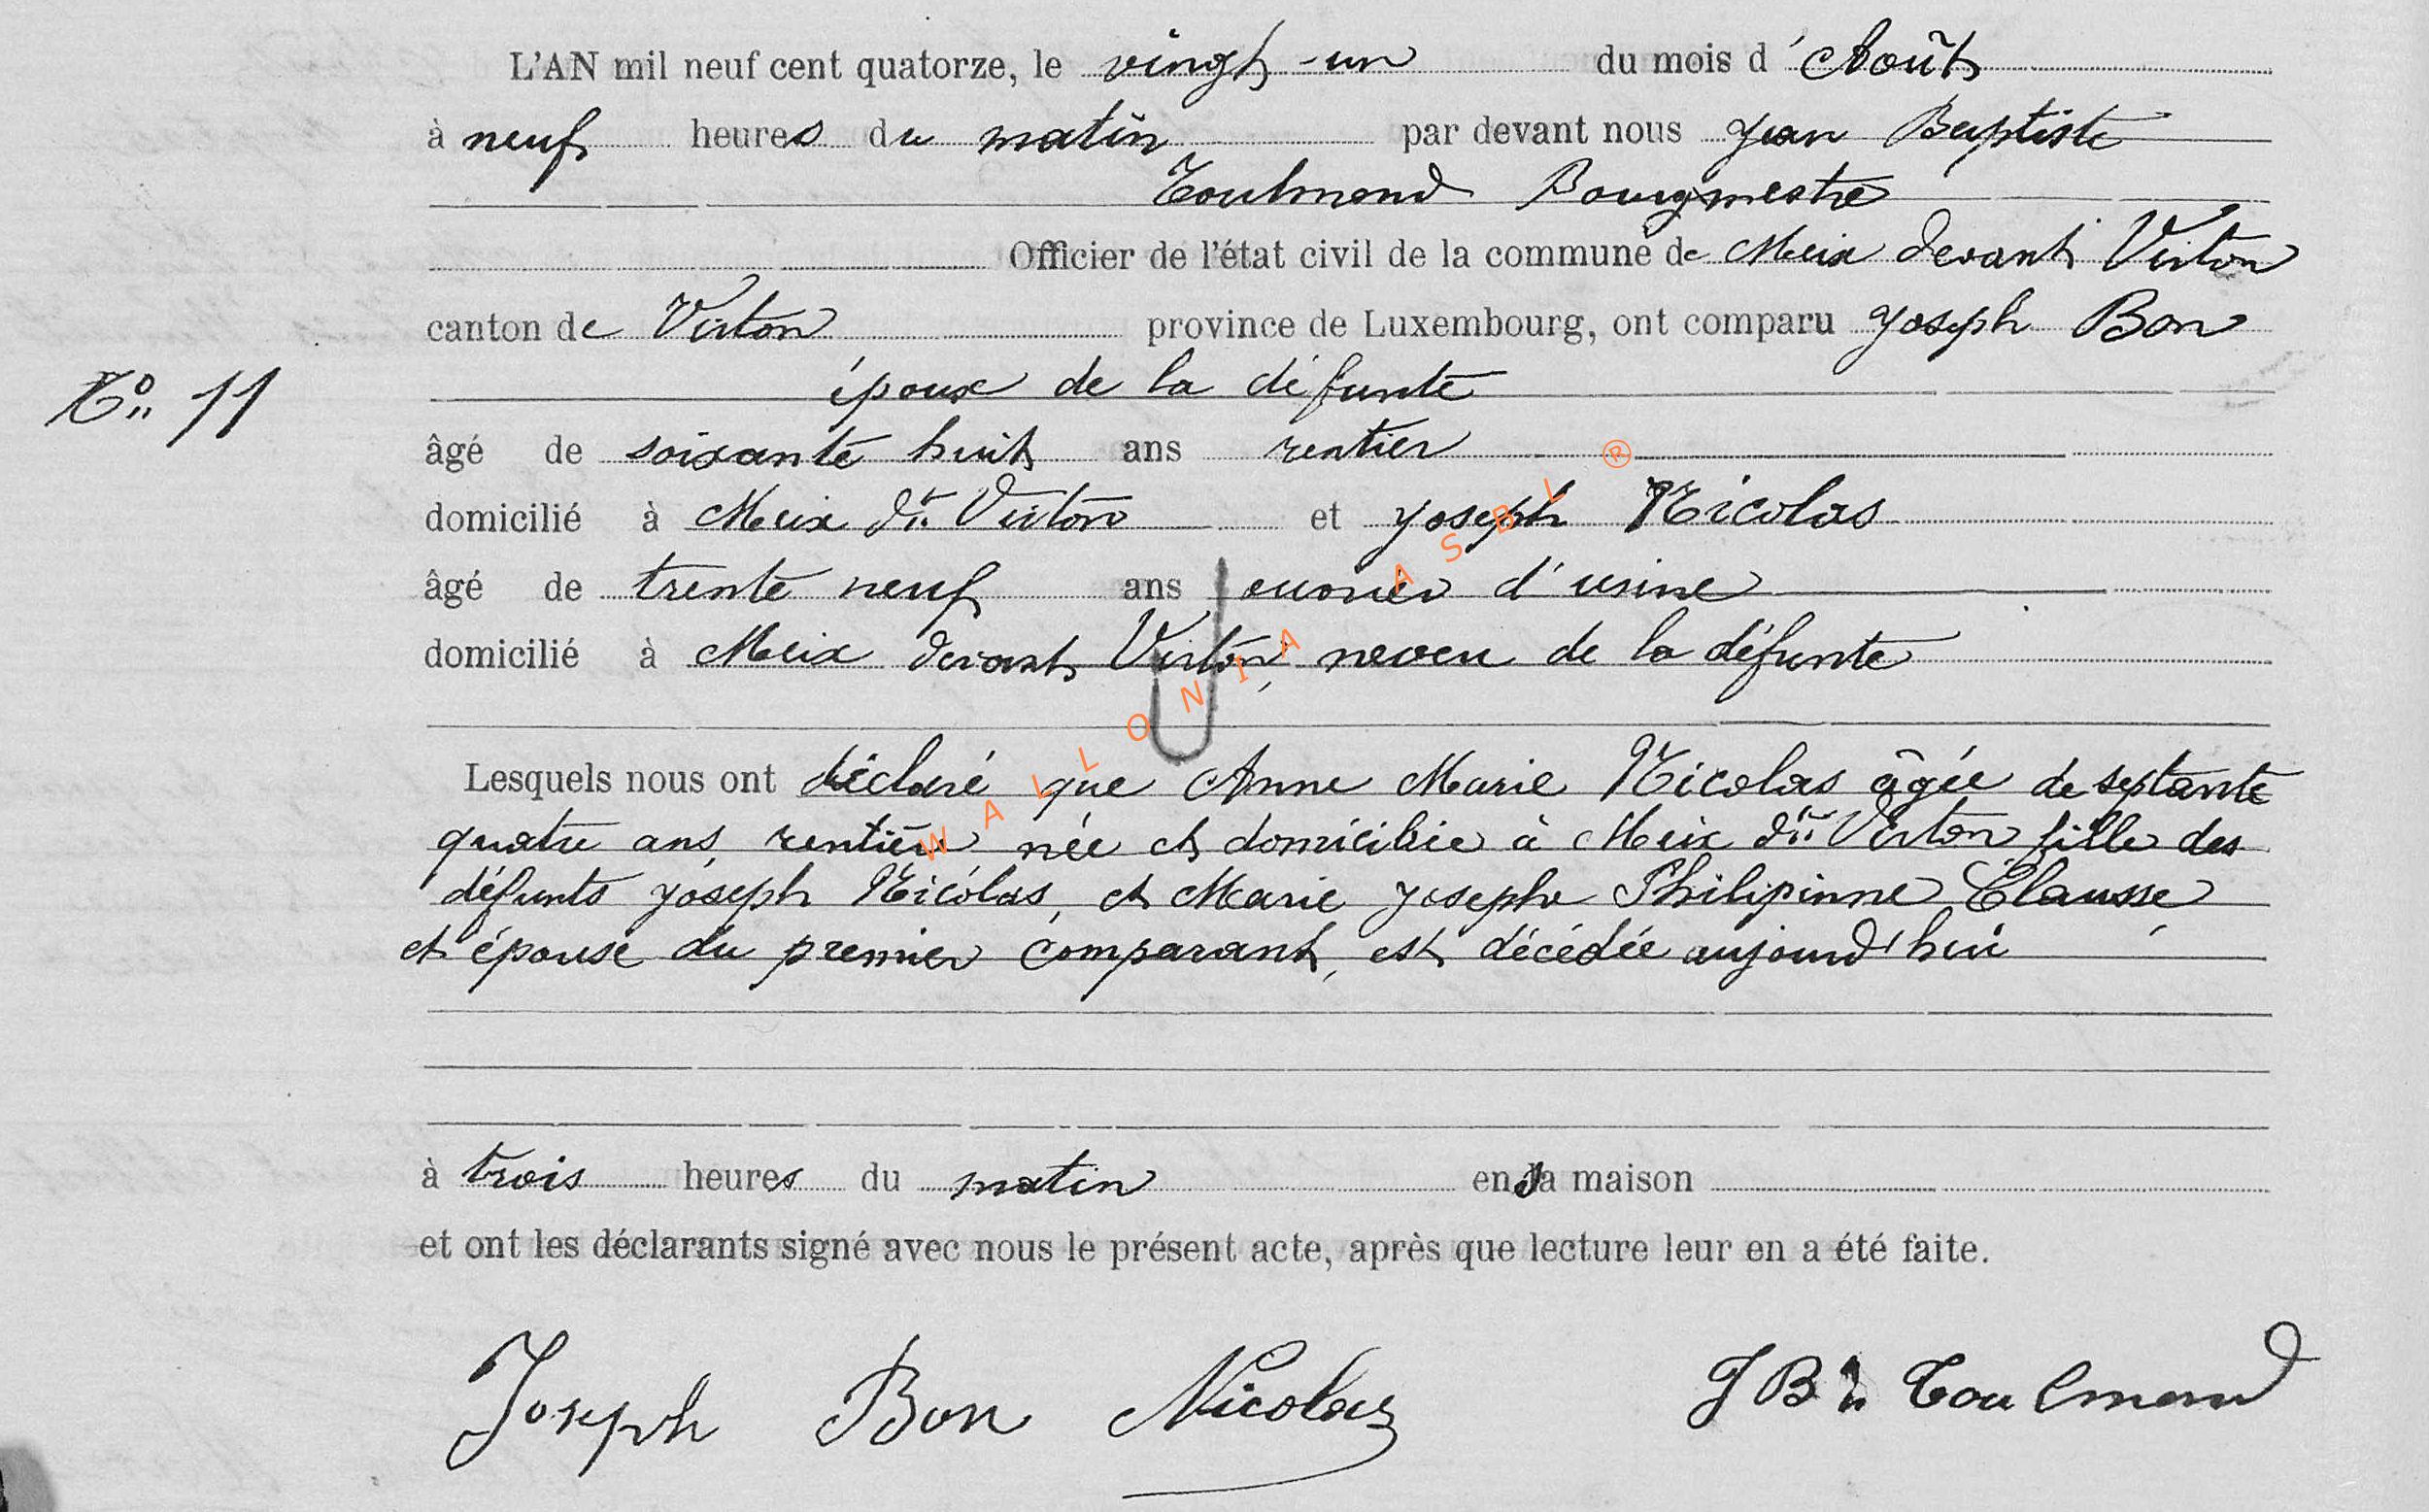 L'AN mil neuf cent quatorze, le vingt-un du mois d'Août
à neuf heures du matin par devant nous Jean Baptiste
Toulmond Bourgmestre
Officier de l'état civil de la commune de Meix devant Virton
canton de Virton province de Luxembourg, ont comparu Joseph Bon
N° 11
époux de la défunte
âgé de soixante huit ans rentier
domicilié à Meix dt Virton et Joseph Nicolas
âgé de trente neuf ans ouvrier d'usine
domicilié à Meix devant Virton, neveu de la défunte
Lesquels nous ont déclaré que Anne Marie Nicolas âgée de septante
quatre ans, rentière née et domiciliée à Meix dt Virton fille des
défunts Joseph Nicolas, et Marie Josephe Philipinne Clausse
et épouse du premier comparant, est décédée aujourd'hui
à trois heures du matin en sa maison
et ont les déclarants signé avec nous le présent acte, après que lecture leur en a été faite.
Joseph Bon Nicolas J B Toulmond
WALLONIA ASBL ®